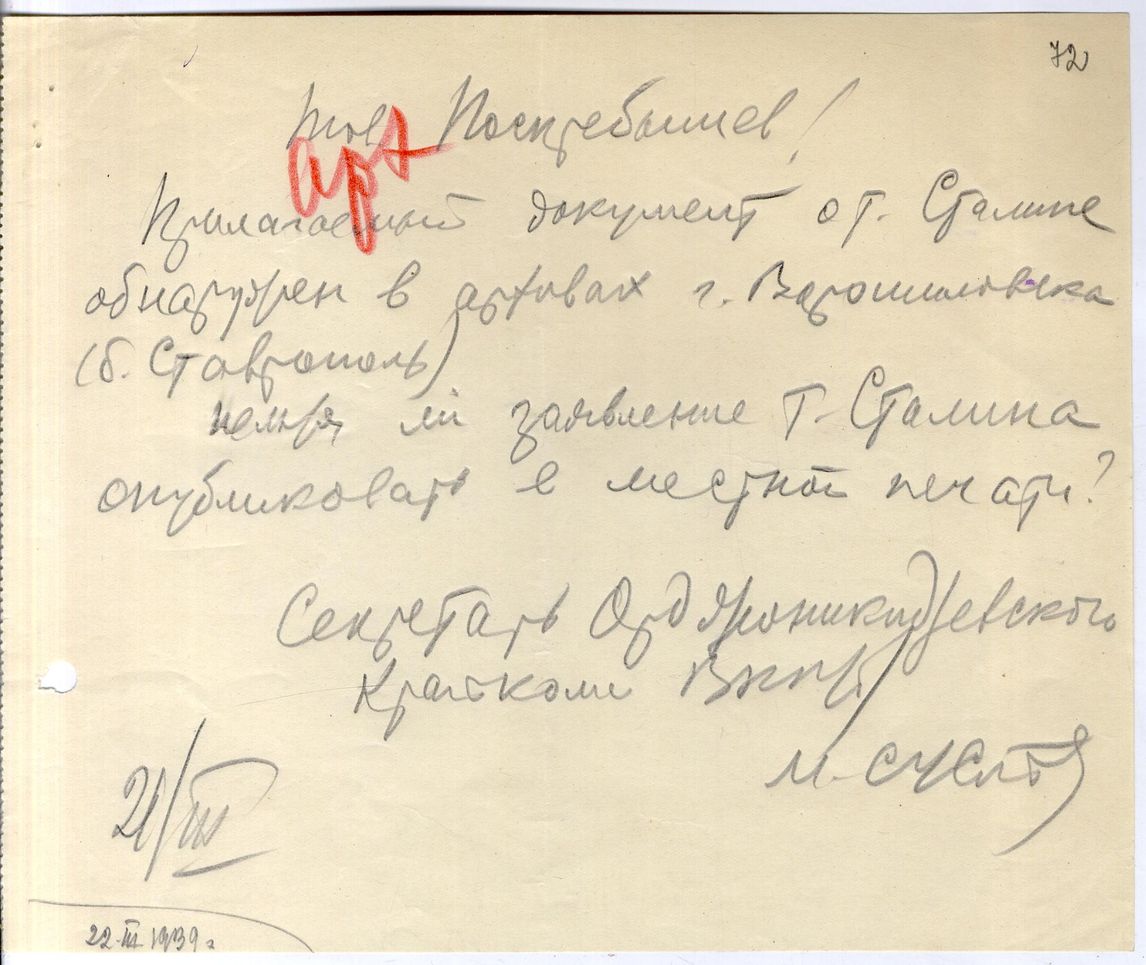 72
Тов. Поскребышев!
арх
Прилагаемый документ о т. Сталине
обнаружен в архивах г. Ворошиловска
(б. Ставрополь)
нельзя ли заявление т. Сталина
опубликовать в местной печати?
Секретарь Орджоникидзевского
Крайкома ВКП(б)
М. Суслов
21/III
22.III 1939 г.